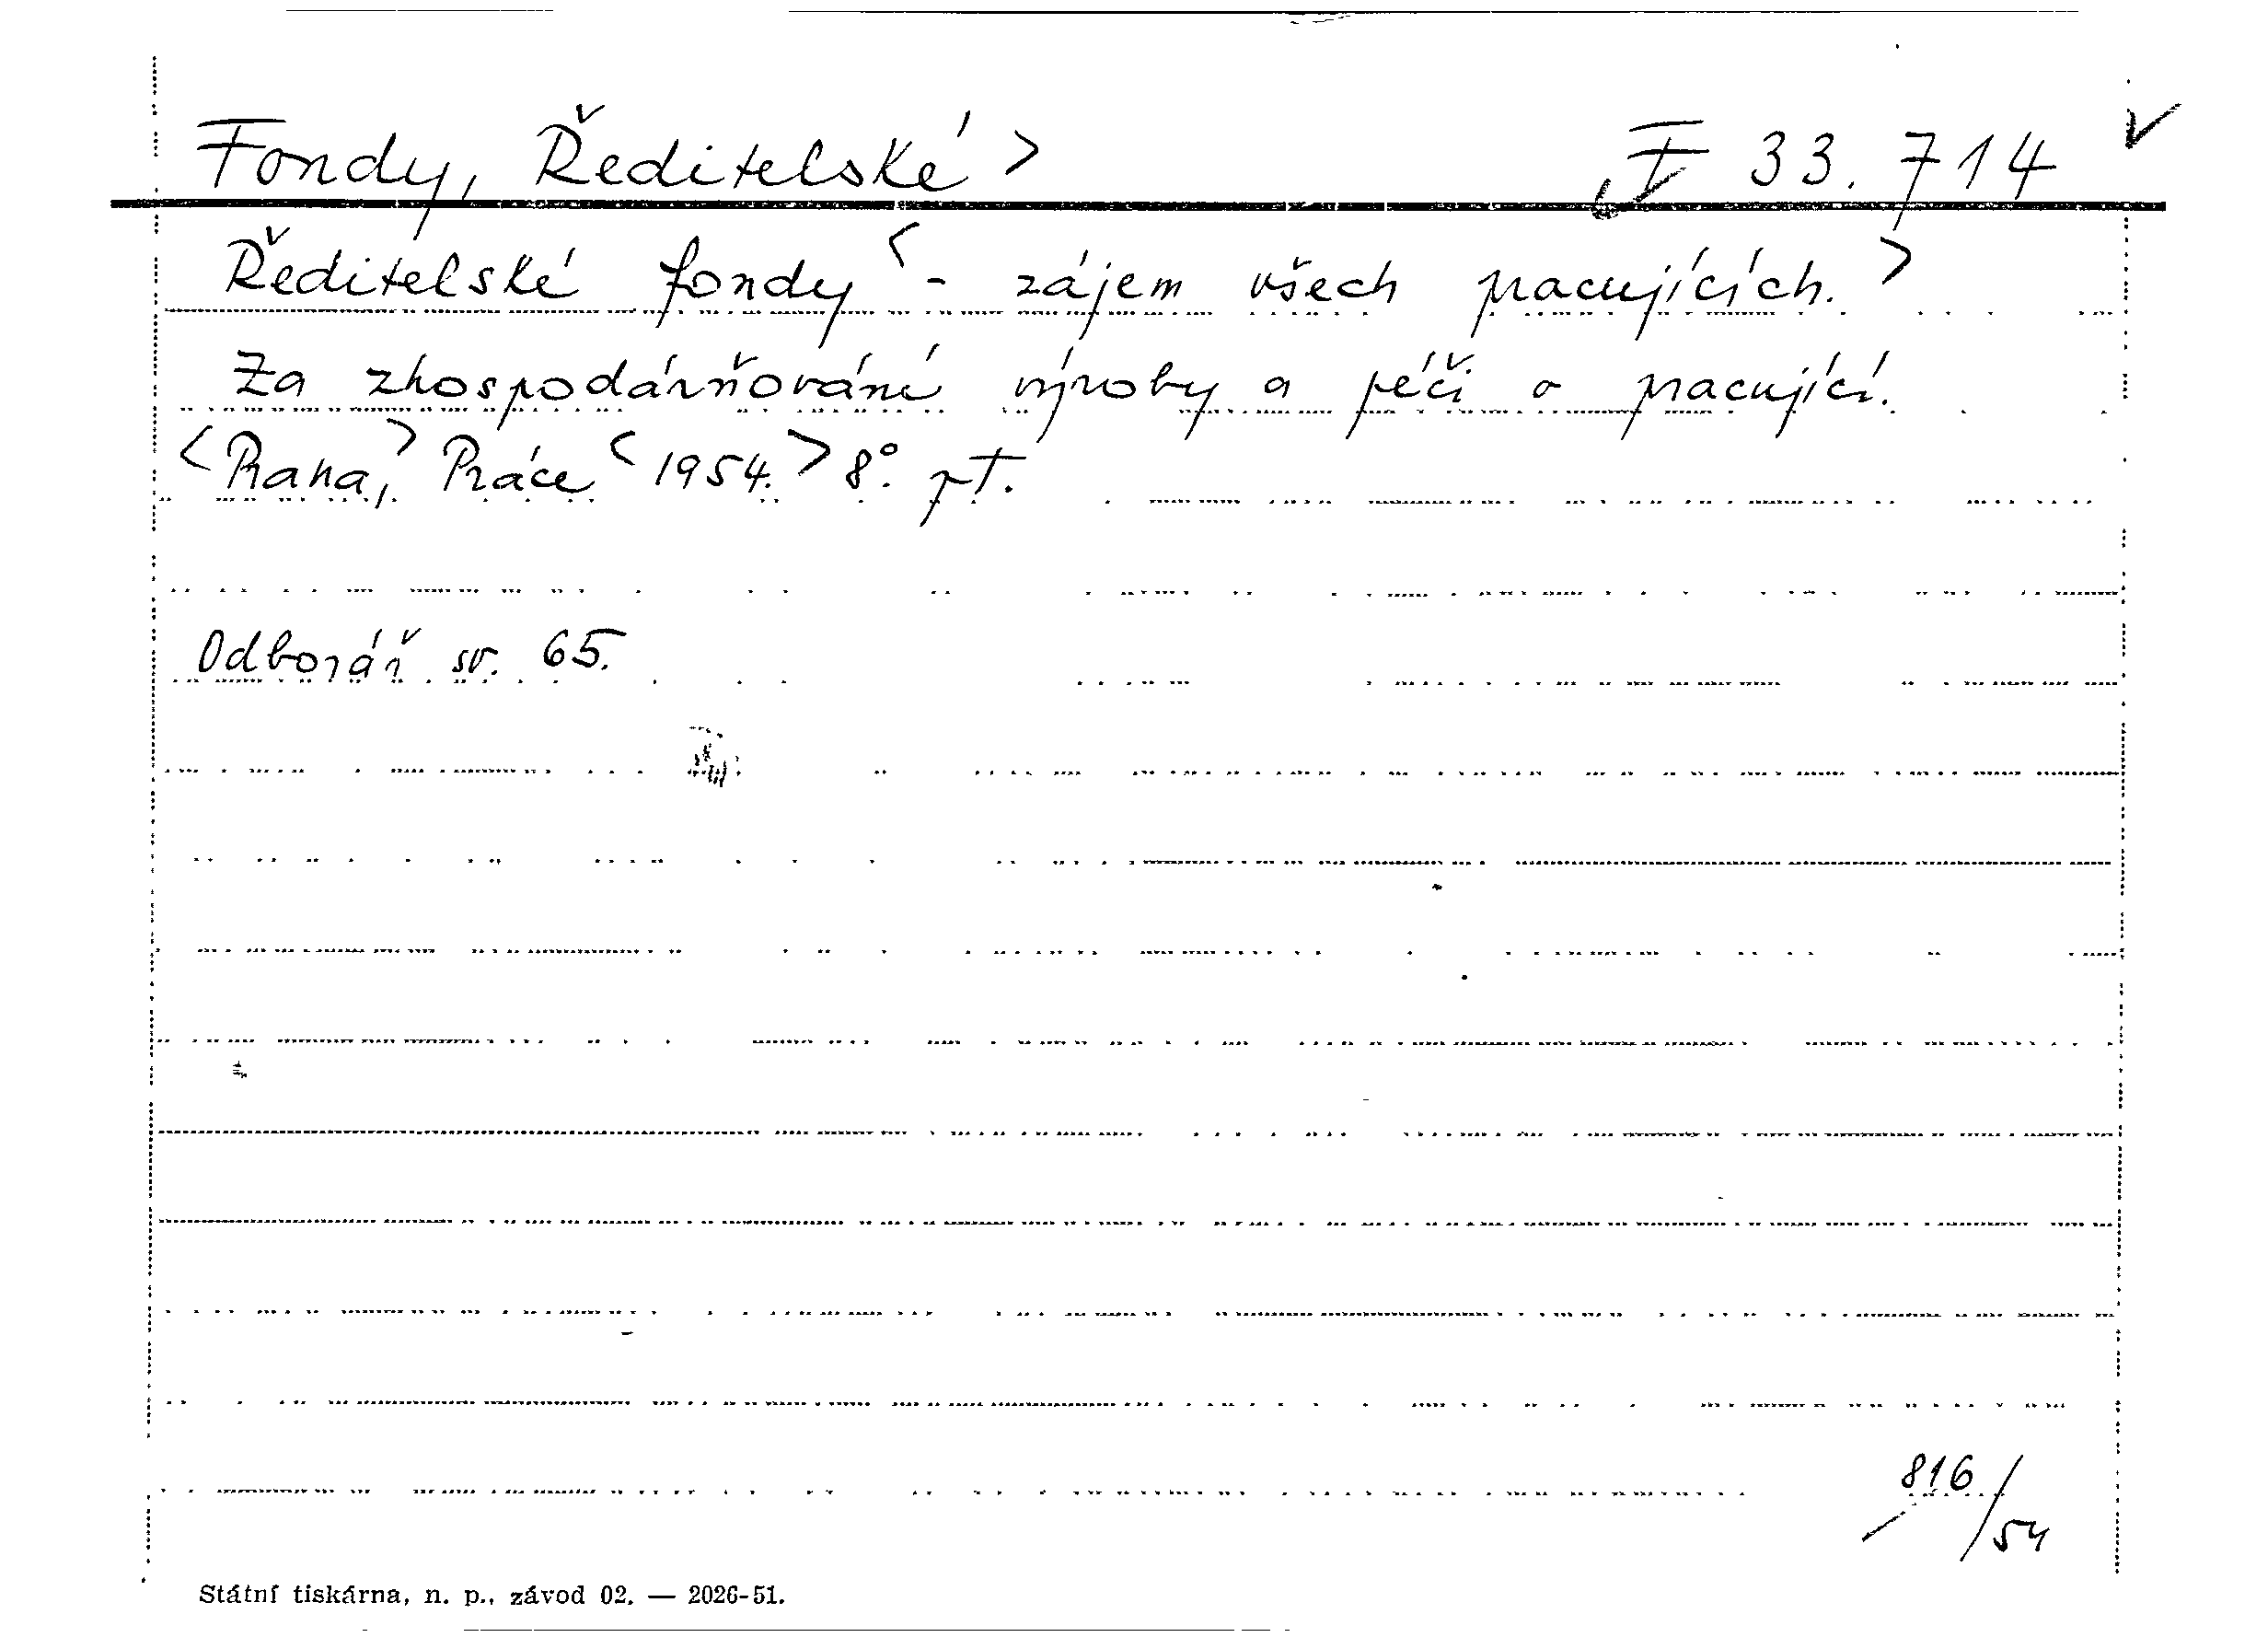 Fondy, Ředitelské > F 33.714 ✓
Ředitelské fondy < - zájem všech pracujících. >
Za zhospodárňování výroby a péči o pracující.
< Praha, > Práce < 1954. > 8°. pT.
Odborář sv. 65.
816/54
Státní tiskárna, n. p., závod 02. — 2026-51.